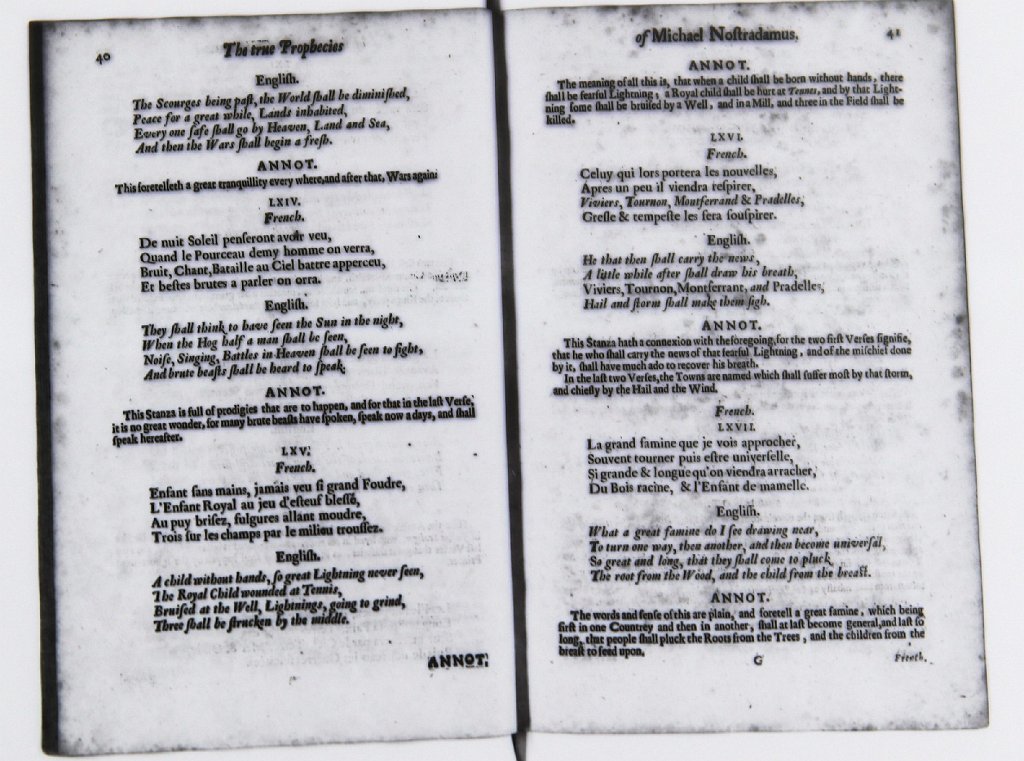 40
The true Prophecies
Engliſh.
The Scourges being paſt, the World ſhall be diminiſhed,
Peace for a great while, Lands inhabited,
Every one ſafe ſhall go by Heaven, Land and Sea,
And then the Wars ſhall begin a freſh.
ANNOT.
This foretelleth a great tranquillity every where, and after that, Wars again:
LXIV.
French.
De nuit Soleil penſeront avoir veu,
Quand le Pourceau demy homme on verra,
Bruit, Chant, Bataille au Ciel battre apperceu,
Et beſtes brutes a parler on orra.
Engliſh.
They ſhall think to have ſeen the Sun in the night,
When the Hog half a man ſhall be ſeen,
Noiſe, Singing, Battles in Heaven ſhall be ſeen to fight,
And brute beaſts ſhall be heard to ſpeak.
ANNOT.
This Stanza is full of prodigies that are to happen, and for that in the laſt Verſe,
it is no great wonder, for many brute beaſts have ſpoken, ſpeak now a days, and ſhall
ſpeak hereafter.
LXV.
French.
Enfant ſans mains, jamais veu ſi grand Foudre,
L'Enfant Royal au jeu d'eſteuf bleſſé,
Au puy briſez, fulgures allant moudre,
Trois ſur les champs par le milieu trouſſez.
Engliſh.
A child without hands, ſo great Lightning never ſeen,
The Royal Child wounded at Tennis,
Bruiſed at the Well, Lightnings, going to grind,
Three ſhall be ſtrucken by the middle.
ANNOT.
of Michael Noſtradamus.
41
ANNOT.
The meaning of all this is, that when a child ſhall be born without hands, there
ſhall be fearful Lightning, a Royal child ſhall be hurt at Tennis, and by that Light-
ning ſome ſhall be bruiſed by a Well, and in a Mill, and three in the Field ſhall be
killed.
LXVI.
French.
Celuy qui lors portera les nouvelles,
Apres un peu il viendra reſpirer,
Viviers, Tournon, Montferrand & Pradelles,
Greſle & tempeſte les fera ſouſpirer.
Engliſh.
He that then ſhall carry the news,
A little while after ſhall draw his breath,
Viviers, Tournon, Montferrant, and Pradelles,
Hail and ſtorm ſhall make them ſigh.
ANNOT.
This Stanza hath a connexion with the foregoing, for the two firſt Verſes ſignifie,
that he who ſhall carry the news of that fearful Lightning, and of the miſchief done
by it, ſhall have much ado to recover his breath.
In the laſt two Verſes, the Towns are named which ſhall ſuffer moſt by that ſtorm,
and chiefly by the Hail and the Wind.
French.
LXVII.
La grand famine que je vois approcher,
Souvent tourner puis eſtre univerſelle,
Si grande & longue qu'on viendra arracher,
Du Bois racine, & l'Enfant de mamelle.
Engliſh.
What a great famine do I ſee drawing near,
To turn one way, then another, and then become univerſal,
So great and long, that they ſhall come to pluck
The root from the Wood, and the child from the breaſt.
ANNOT.
The words and ſenſe of this are plain, and foretell a great famine, which being
firſt in one Countrey and then in another, ſhall at laſt become general, and laſt ſo
long, that people ſhall pluck the Roots from the Trees, and the children from the
breaſt to feed upon.
G